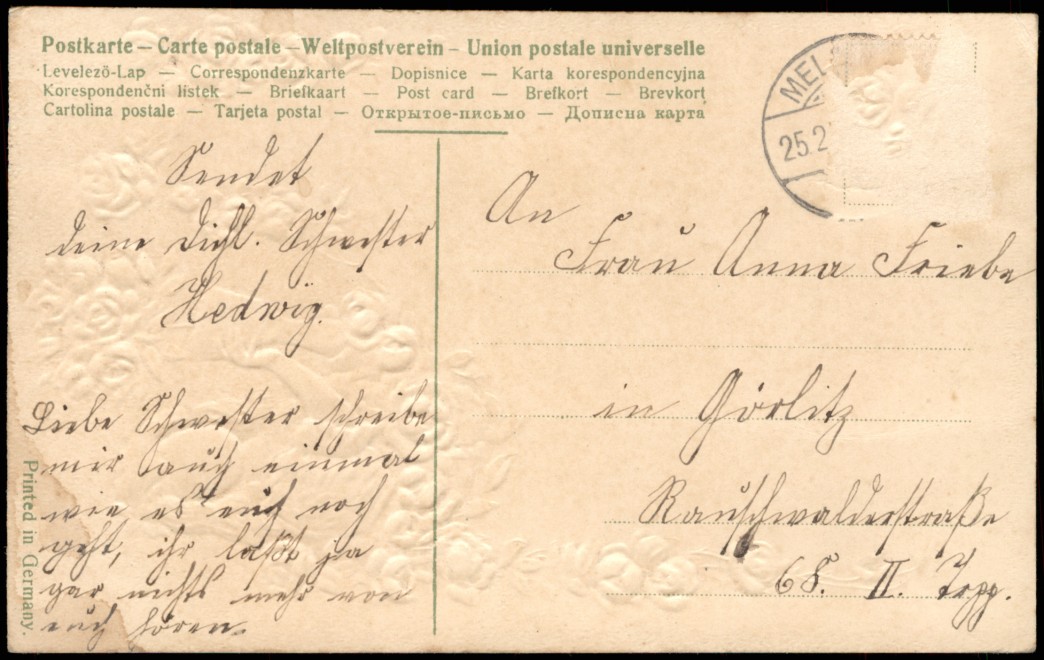 Postkarte – Carte postale – Weltpostverein – Union postale universelle
Levelező-Lap — Correspondenzkarte — Dopisnice — Karta korespondencyjna
Korespondenční lístek — Briefkaart — Post card — Brefkort — Brevkort
Cartolina postale — Tarjeta postal — Открытое-письмо — Дописна карта
MEL
25.2
Sendet
deine Dichl. Schwester
Hedwig.
Liebe Schwester schreibe
mir auch einmal
wie es euch noch
geht, ihr laßt ja
gar nichts mehr von
euch hören.
An
Frau Anna Friebe
in Görlitz
Rauschwalderstraße
68. II. Trpp.
Printed in Germany.